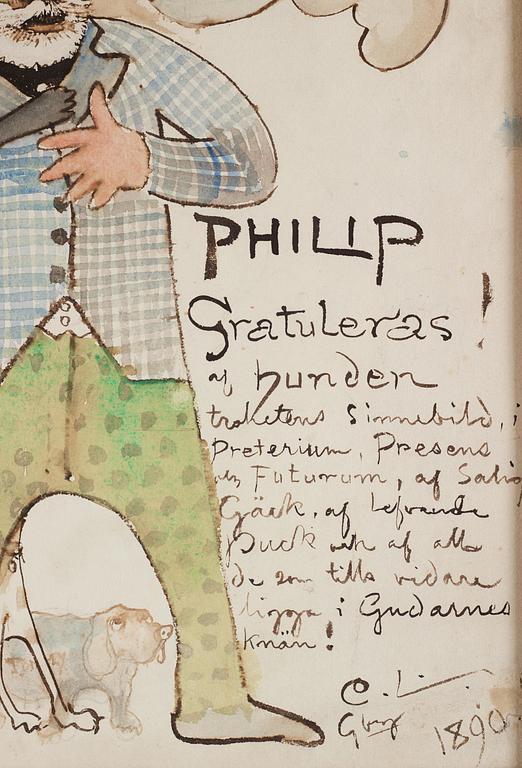 PHILIP
Gratuleras!
af hunden
trohetens Sinnebild, i
Preterium, Presens
och Futurum, af Salig
Gäck, af lefvande
Puck och af alla
de som tills vidare
ligga i Gudarnes
knän!
C. L.
Gbg 1890